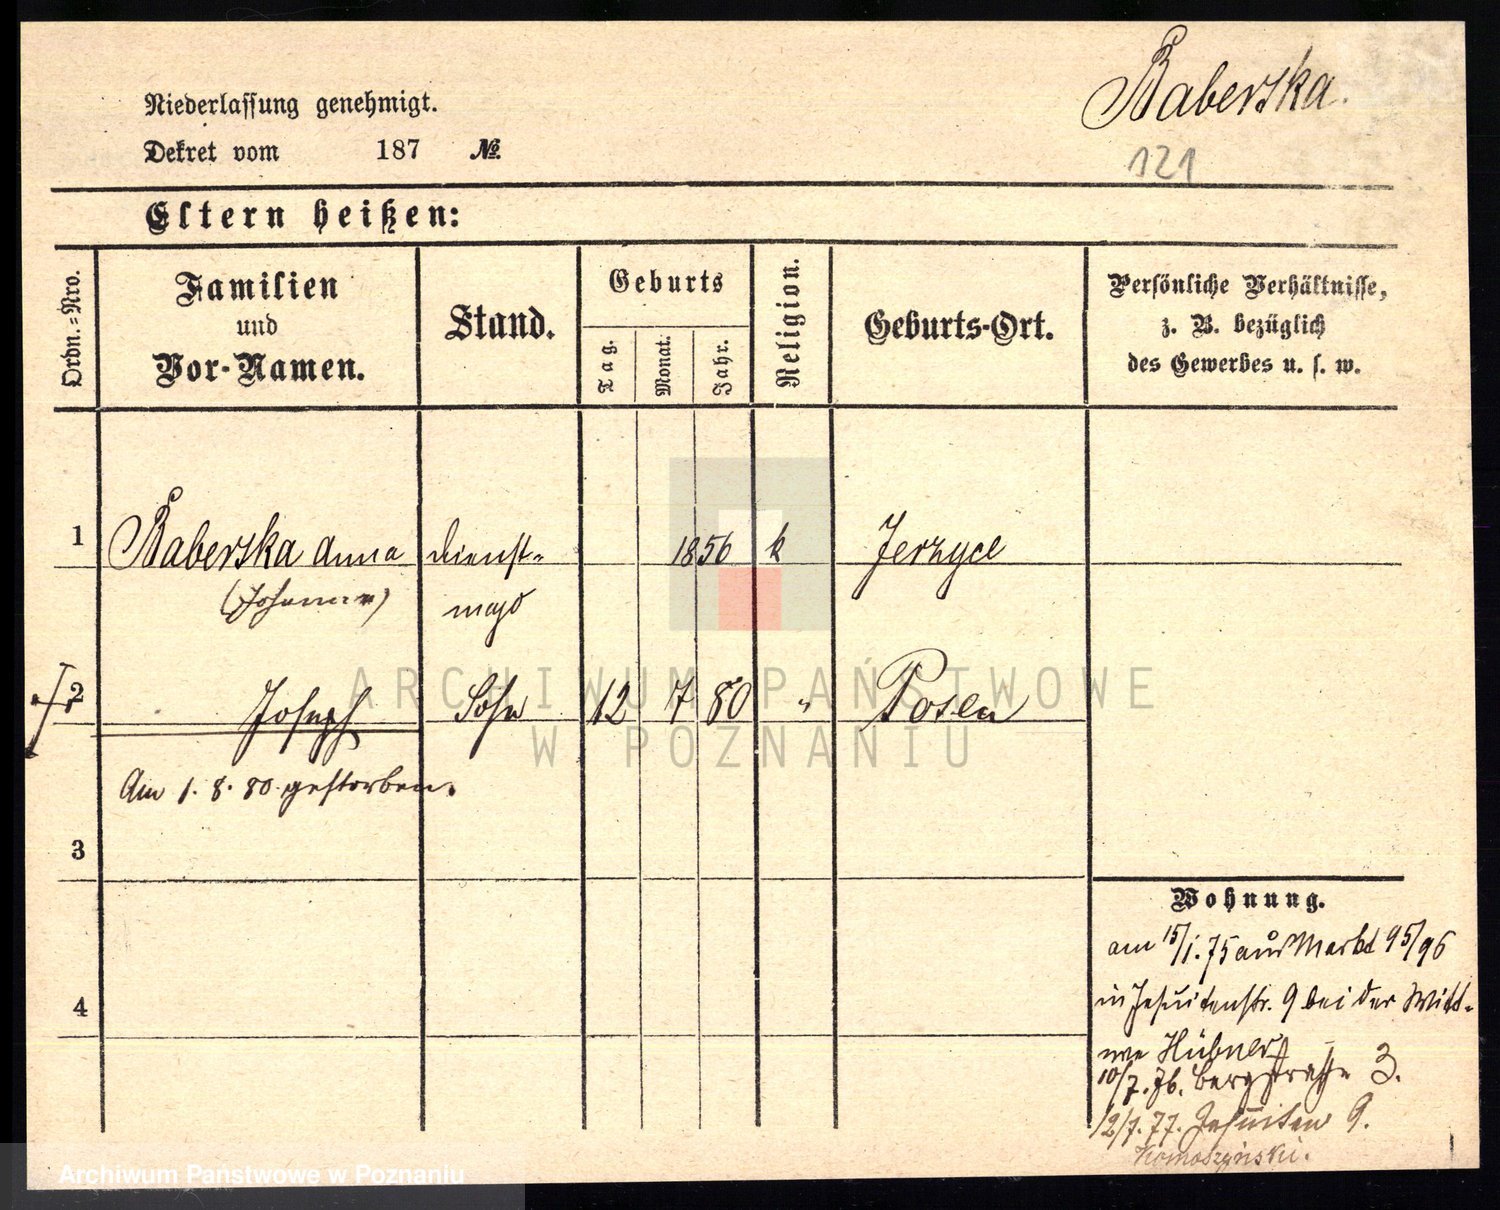 Baberska.
Niederlassung genehmigt.
Dekret vom 187 №
121
Eltern heißen:
Ordn.-Nro.
Familien und Vor-Namen.
Stand.
Geburts
Tag.
Monat.
Jahr.
Religion.
Geburts-Ort.
Persönliche Verhältnisse,
z. B. bezüglich
des Gewerbes u. s. w.
1 Baberska Anna Dienst- 1856 k Jerzyce
(Johanna) magd
2 Joseph Sohn 12 7 80 " Posen
Am 1. 8. 80 gestorben.
3
4
Wohnung.
am 15/1. 75 aus Markt 95/96
in Jesuitenstr. 9 bei der Witt-
we Hübner
10/7. 76. Bergstraße 3.
12/7. 77. Jesuiten 9.
Komoszyński.
ARCHIWUM PAŃSTWOWE
W POZNANIU
Archiwum Państwowe w Poznaniu